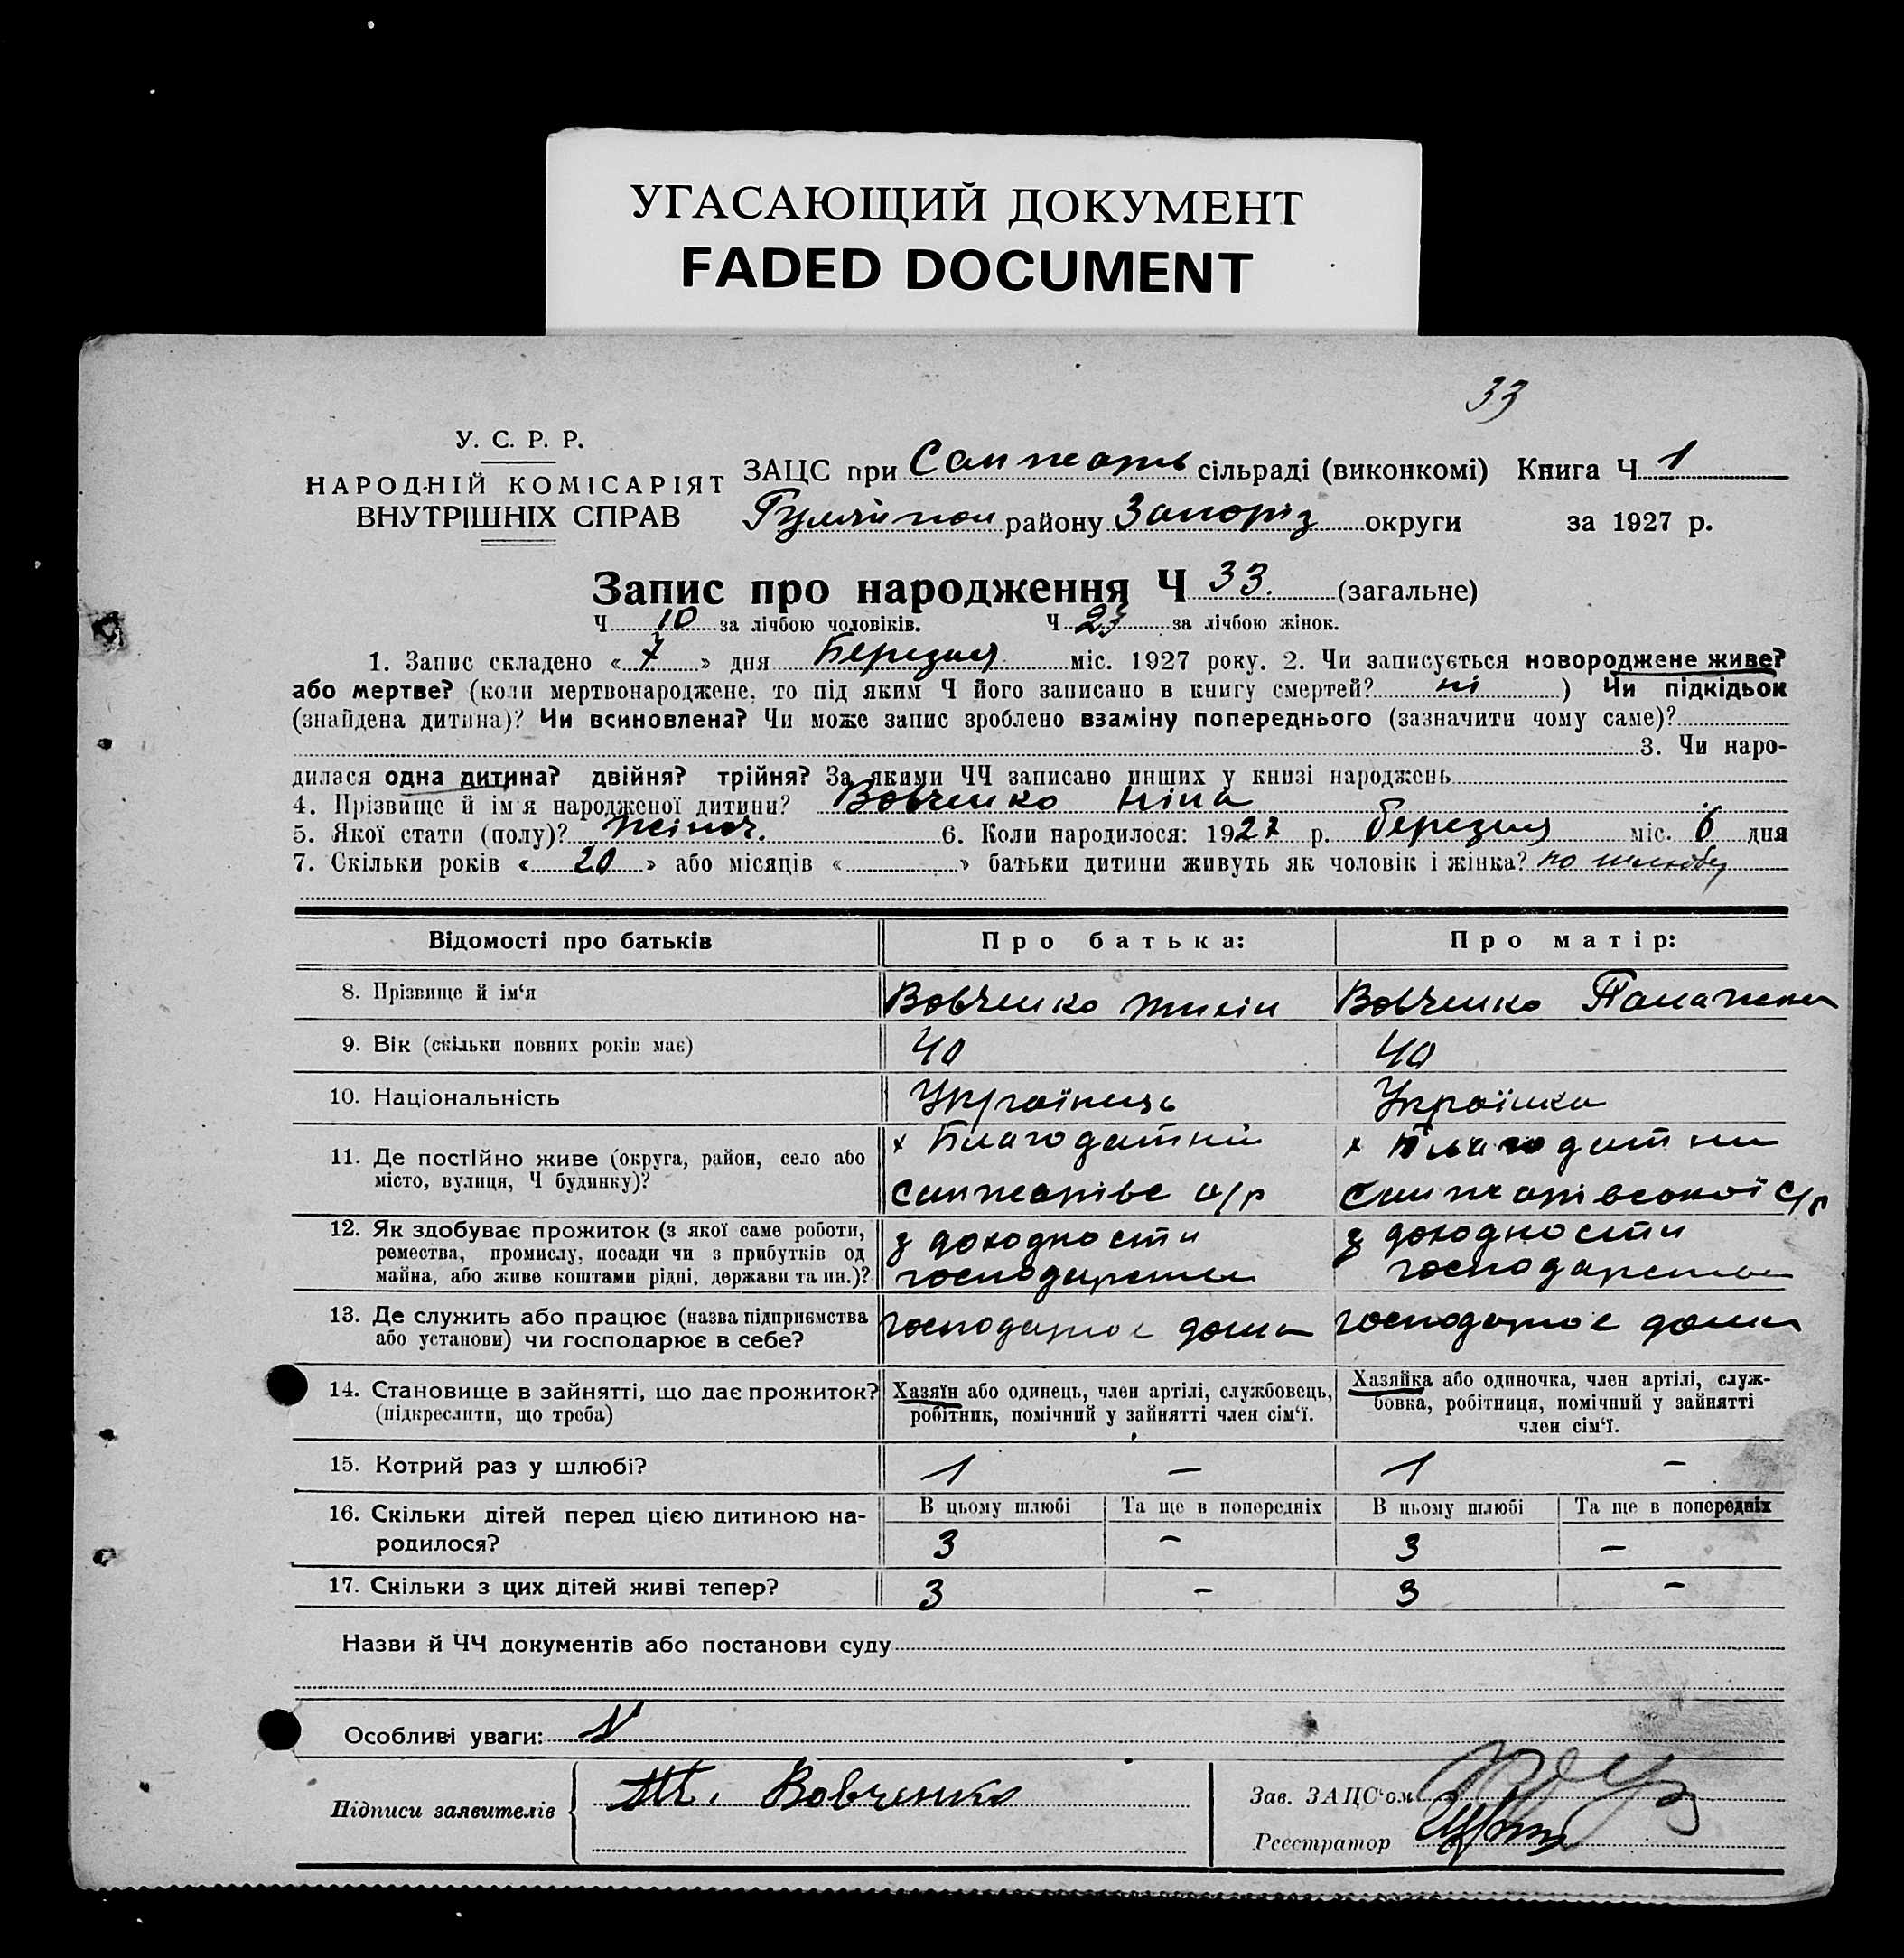 УГАСАЮЩИЙ ДОКУМЕНТ
FADED DOCUMENT
33
У. С. Р. Р.
НАРОДНІЙ КОМІСАРІЯТ
ВНУТРІШНІХ СПРАВ
ЗАЦС при Санжарів сільраді (виконкомі) Книга Ч 1
Гуляйпол району Запоріз округи за 1927 р.
Запис про народження Ч 33. (загальне)
Ч 10 за лічбою чоловіків. Ч 23 за лічбою жінок.
1. Запис складено « 7 » дня Березня міс. 1927 року. 2. Чи записується новороджене живе?
або мертве? (коли мертвонароджене, то під яким Ч його записано в книгу смертей? ні ) Чи підкідьок
(знайдена дитина)? Чи всиновлена? Чи може запис зроблено взаміну попереднього (зазначити чому саме)?
3. Чи наро-
дилася одна дитина? двійня? трійня? За якими ЧЧ записано инших у книзі народжень
4. Прізвище й ім'я народженої дитини? Вовченко Ніна
5. Якої стати (полу)? жіноч. 6. Коли народилося: 1927 р. березня міс. 6 дня
7. Скільки років « 20 » або місяців « » батьки дитини живуть як чоловік і жінка? по шлюбу
Відомості про батьків Про батька: Про матір:
8. Прізвище й ім'я Вовченко Вовченко
9. Вік (скільки повних років має) 40 40
10. Національність Українець Українка
11. Де постійно живе (округа, район, село або х Благодатний х Благодатний
місто, вулиця, Ч будинку)? Санжарівс с/р Санжарівської с/р
12. Як здобуває прожиток (з якої саме роботи, з доходности з доходности
ремества, промислу, посади чи з прибутків од
майна, або живе коштами рідні, держави та ин.)? господарства господарства
13. Де служить або працює (назва підприємства господарює дома господарює дома
або установи) чи господарює в себе?
14. Становище в зайнятті, що дає прожиток? Хазяїн або одинець, член артілі, службовець, Хазяйка або одиночка, член артілі, служ-
(підкреслити, що треба) робітник, помічний у зайнятті член сім'ї. бовка, робітниця, помічний у зайнятті
член сім'ї.
15. Котрий раз у шлюбі? 1 — 1 —
16. Скільки дітей перед цією дитиною на- В цьому шлюбі Та ще в попередніх В цьому шлюбі Та ще в попередніх
родилося? 3 — 3 —
17. Скільки з цих дітей живі тепер? 3 — 3 —
Назви й ЧЧ документів або постанови суду
Особливі уваги:
Підписи заявителів Вовченко
Зав. ЗАЦС'ом
Реєстратор